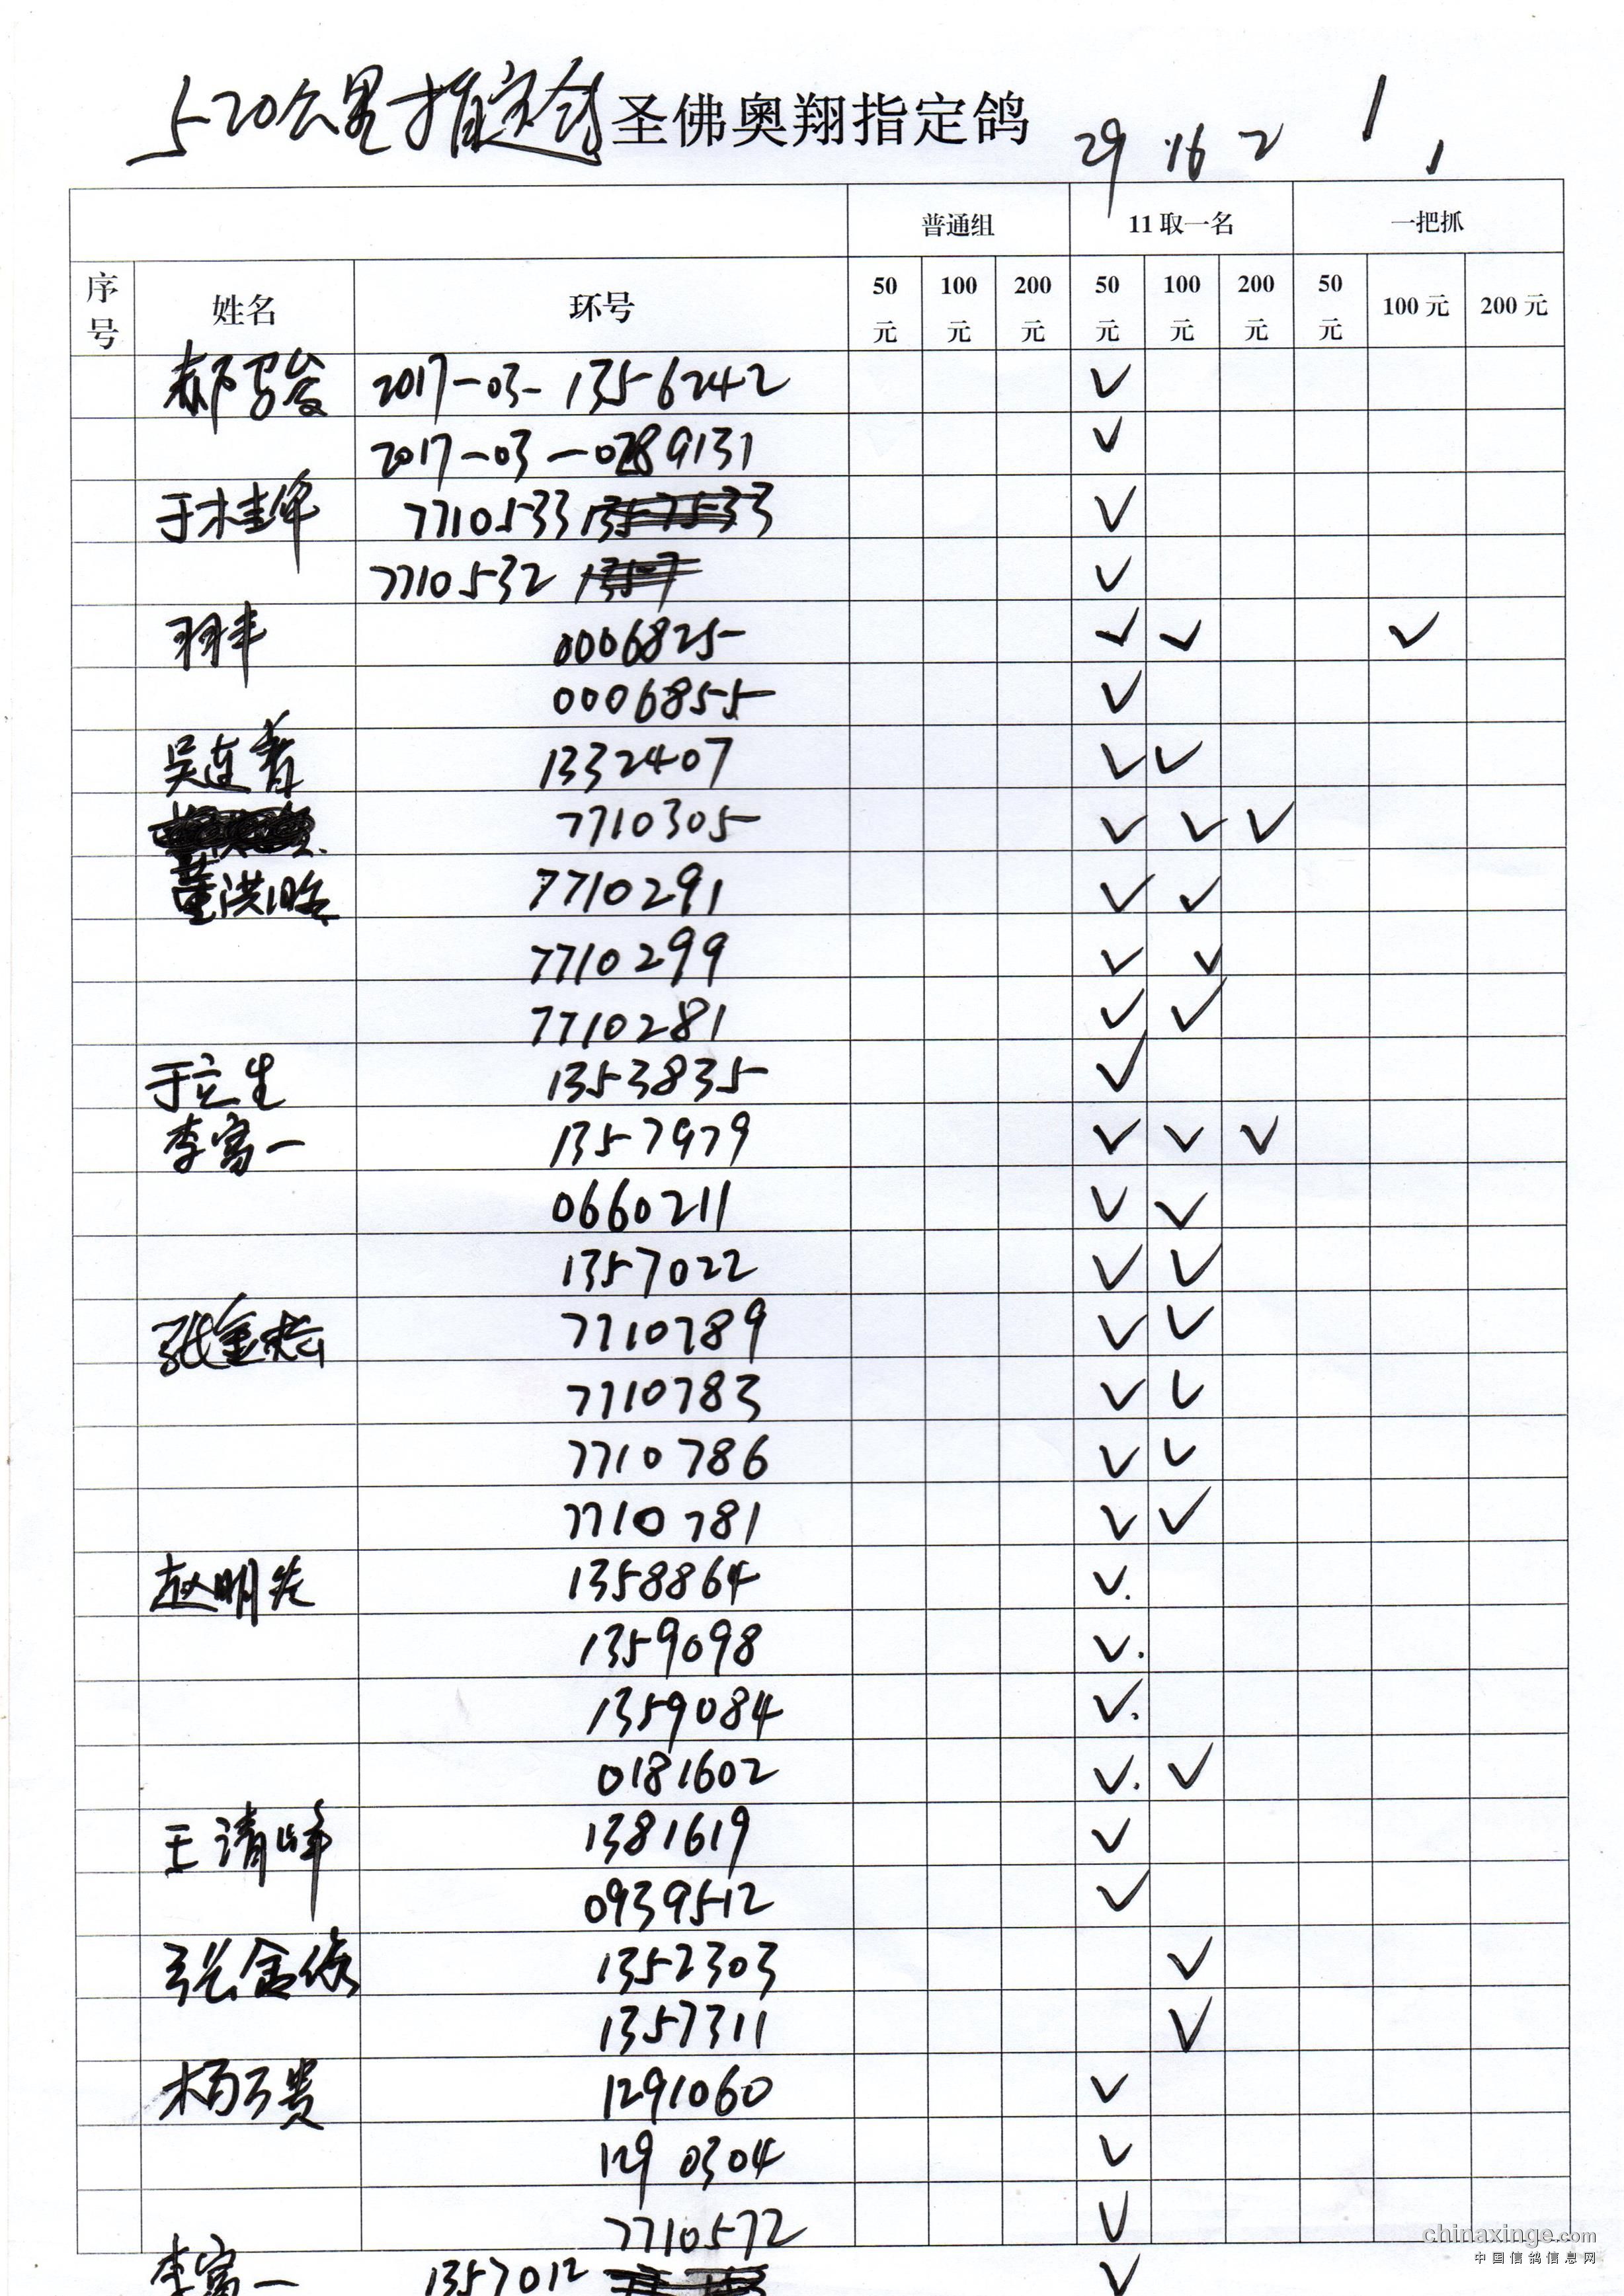 520公里指定鸽 圣佛奥翔指定鸽 29 16 2 1 1
普通组 11取一名 一把抓
序号 姓名 环号 50元 100元 200元 50元 100元 200元 50元 100元 200元
郝 2017-03-1356242 ✓
2017-03-0289131 ✓
于桂华 7710533 ✓
7710532 ✓
羽丰 0006825 ✓ ✓ ✓
0006855 ✓
吴连香 1332407 ✓ ✓
7710305 ✓ ✓ ✓
董洪 7710291 ✓ ✓
7710299 ✓ ✓
7710281 ✓ ✓
于立生 1353835 ✓
李富一 1357979 ✓ ✓ ✓
0660211 ✓ ✓
1357022 ✓ ✓
张金 7710789 ✓ ✓
7710783 ✓ ✓
7710786 ✓ ✓
7710781 ✓ ✓
赵明 1358864 ✓
1359098 ✓
1359084 ✓
0181602 ✓ ✓
王清峰 1381619 ✓
0939512 ✓
张金 1352303 ✓
1357311 ✓
杨万贵 1291060 ✓
1290304 ✓
7710572 ✓
李富一 1357012 ✓
chinaxinge.com
中国信鸽信息网